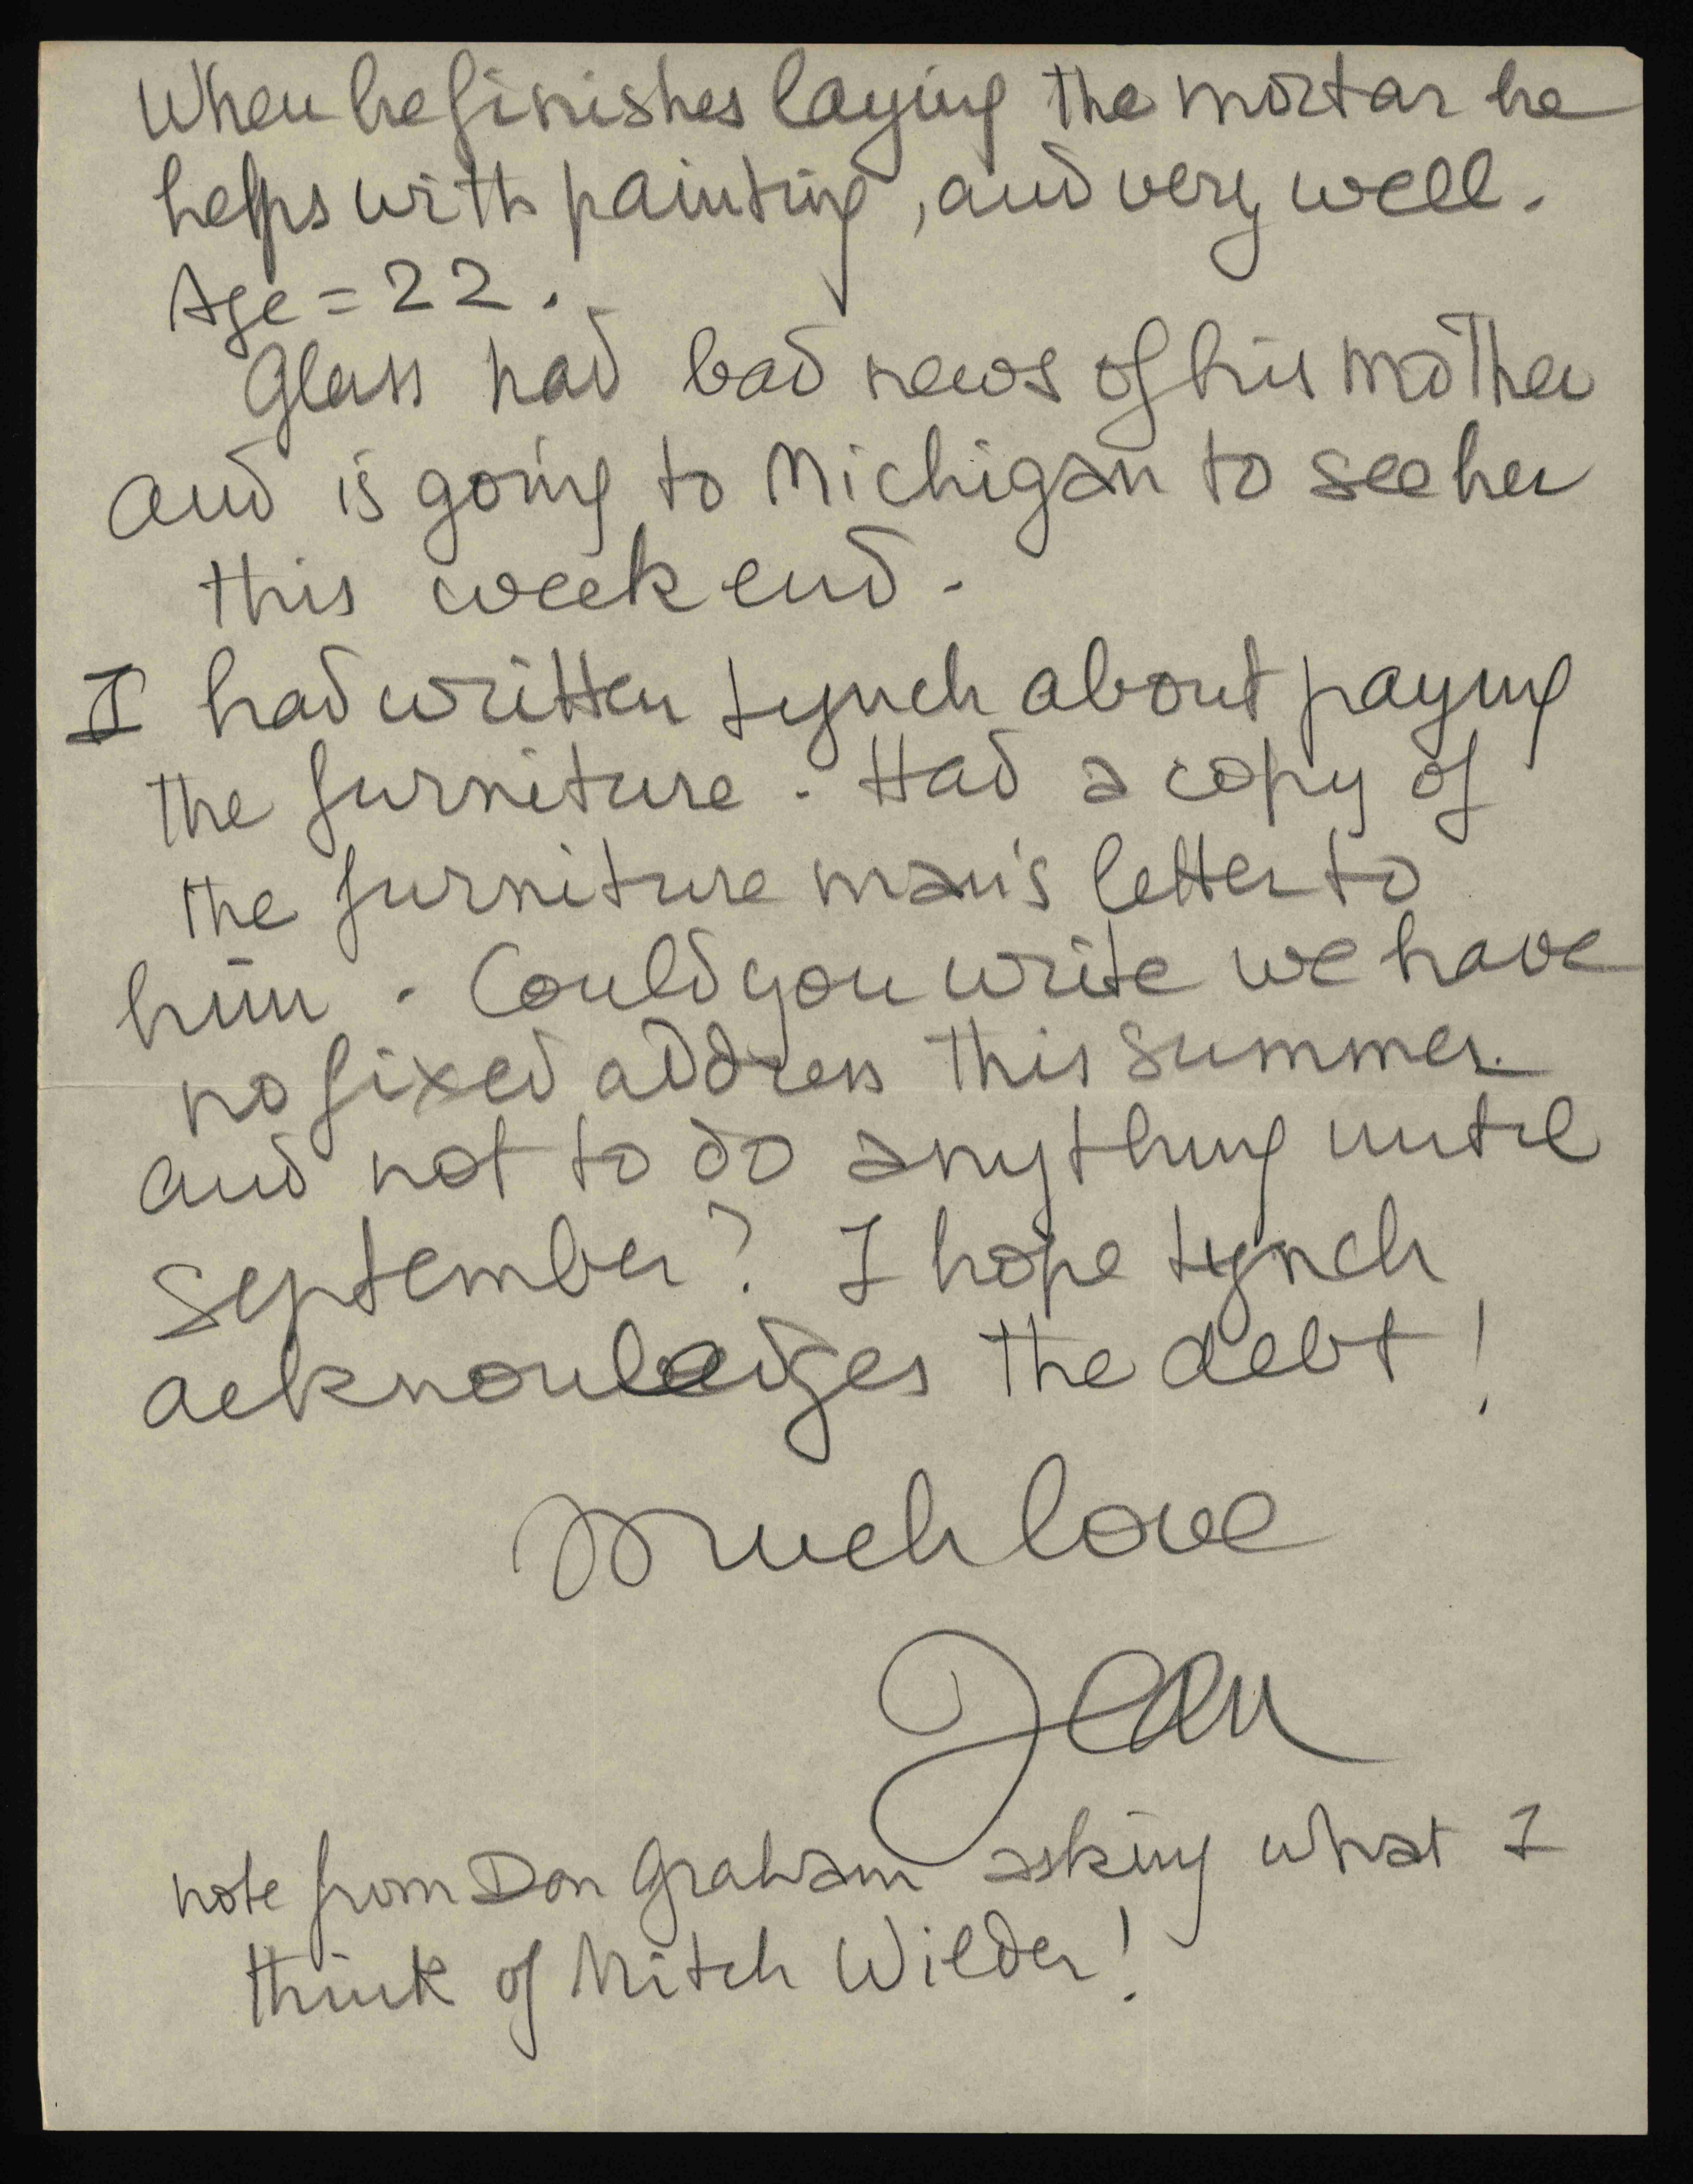 When he finishes laying the mortar he
helps with painting, and very well.
Age = 22.
Glass had bad news of his mother
and is going to Michigan to see her
this week end.
I had written Lynch about paying
the furniture. Had a copy of
the furniture man's letter to
him. Could you write we have
no fixed address this summer.
and not to do anything until
September? I hope Lynch
acknowledges the debt!
Much love
Jean
note from Don Graham asking what I
think of Mitch Wilder!